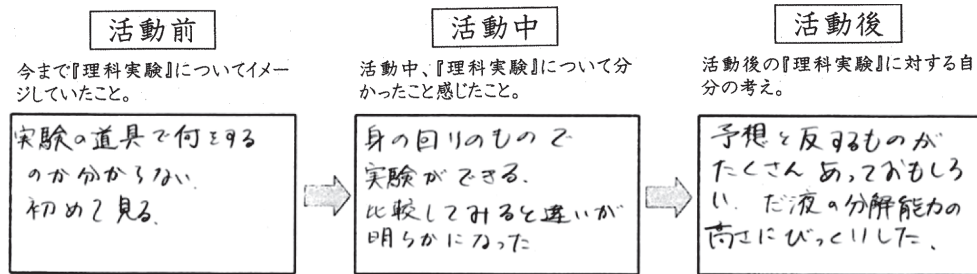 活動前
今まで『理科実験』についてイメー
ジしていたこと。
実験の道具で何をする
のか分からない.
初めて見る.
活動中
活動中、『理科実験』について分
かったこと感じたこと。
身の回りのもので
実験ができる.
比較してみると違いが
明らかになった
活動後
活動後の『理科実験』に対する自
分の考え。
予想と反するものが
たくさんあっておもしろ
い. だ液の分解能力の
高さにびっくりした.